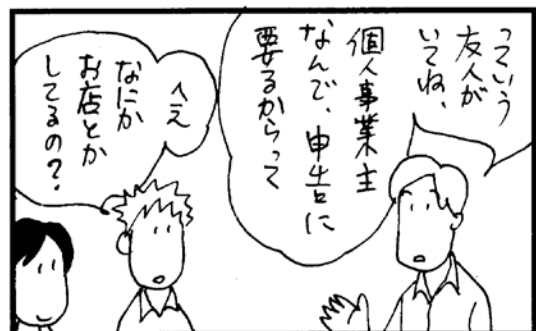 っていう
友人が
いてね、
個人事業主
なんで、申告に
要るからって
へえ
なにか
お店とか
してるの？